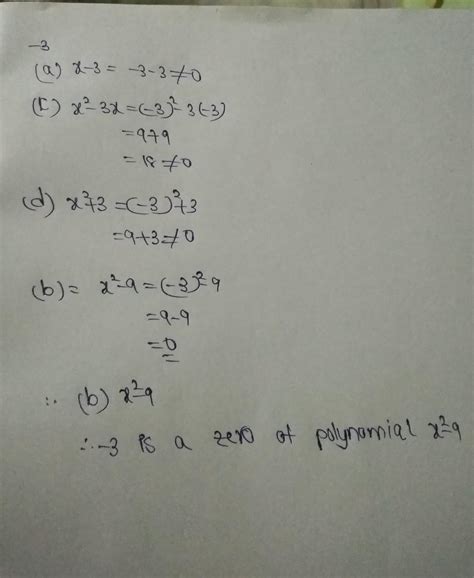 -3
(a) x-3 = -3-3≠0
(c) x²-3x=(-3)²-3(-3)
=9+9
=18≠0
(d) x²+3=(-3)²+3
=9+3≠0
(b)= x²-9=(-3)²-9
=9-9
=0
∴ (b) x²-9
∴-3 is a zero of polynomial x²-9